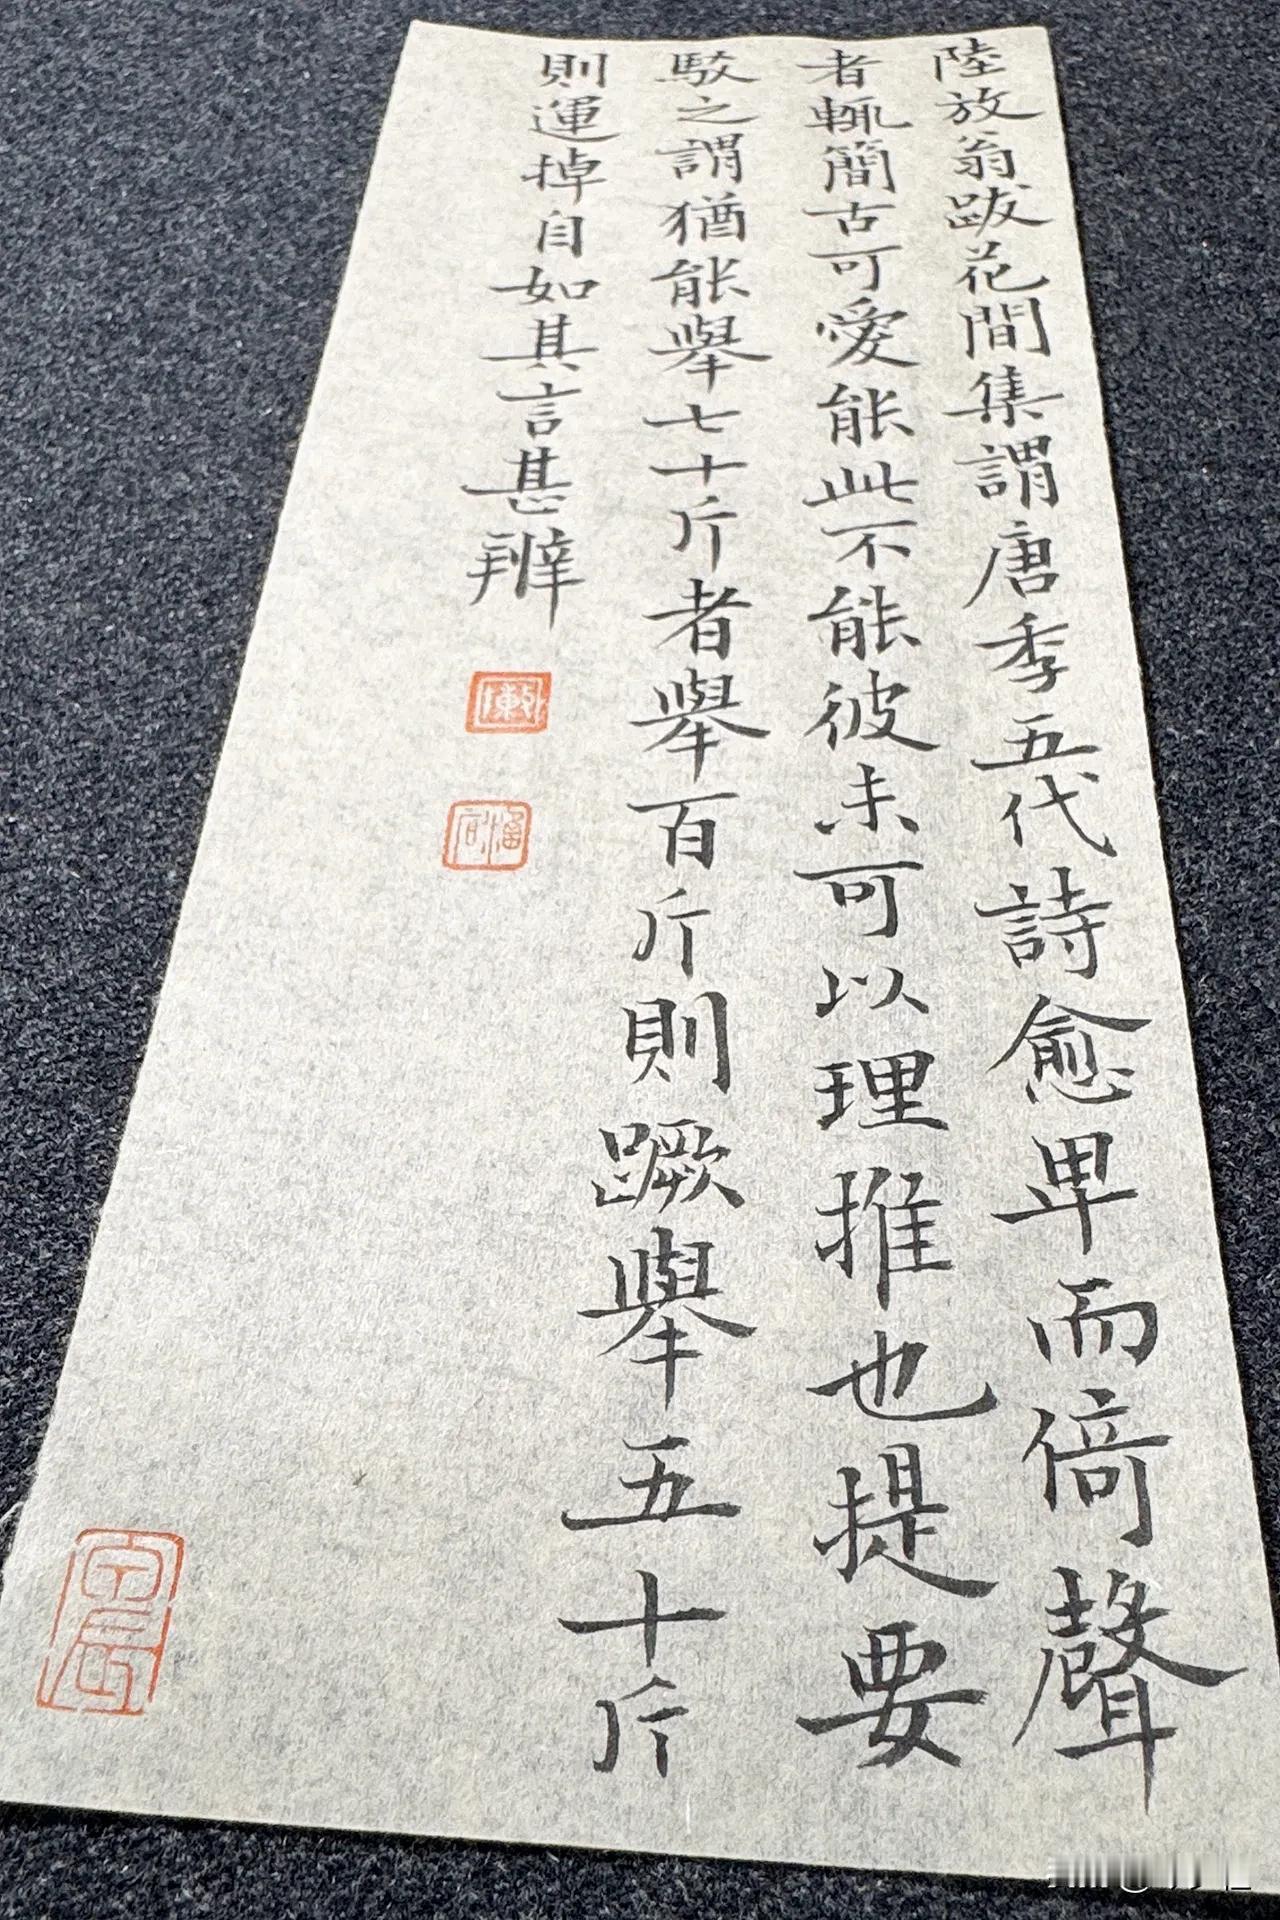 陸放翁跋花間集謂唐季五代詩愈卑而倚聲
者輒簡古可愛能此不能彼未可以理推也提要
駁之謂猶能舉七十斤者舉百斤則蹶舉五十斤
則運掉自如其言甚辨